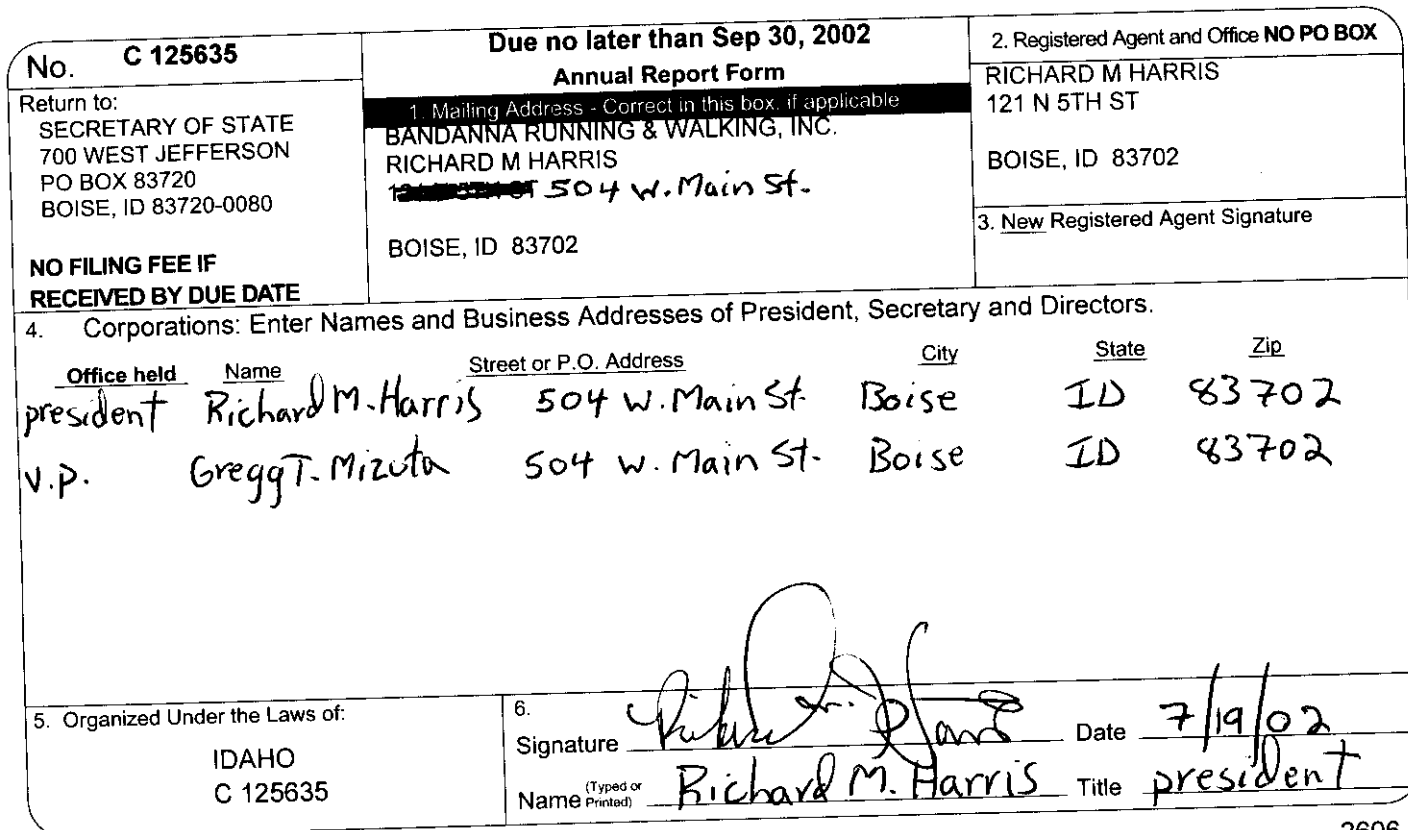 No. C 125635
Return to:
SECRETARY OF STATE
700 WEST JEFFERSON
PO BOX 83720
BOISE, ID 83720-0080
NO FILING FEE IF
RECEIVED BY DUE DATE
Due no later than Sep 30, 2002
Annual Report Form
1. Mailing Address - Correct in this box, if applicable
BANDANNA RUNNING & WALKING, INC.
RICHARD M HARRIS
504 W. Main St.
BOISE, ID 83702
2. Registered Agent and Office NO PO BOX
RICHARD M HARRIS
121 N 5TH ST
BOISE, ID 83702
3. New Registered Agent Signature
4. Corporations: Enter Names and Business Addresses of President, Secretary and Directors.
Office held Name Street or P.O. Address City State Zip
president Richard M. Harris 504 W. Main St. Boise ID 83702
V.P. Gregg T. Mizuta 504 W. Main St. Boise ID 83702
5. Organized Under the Laws of:
IDAHO
C 125635
6.
Signature Date 7/19/02
Name (Typed or Printed) Richard M. Harris Title president